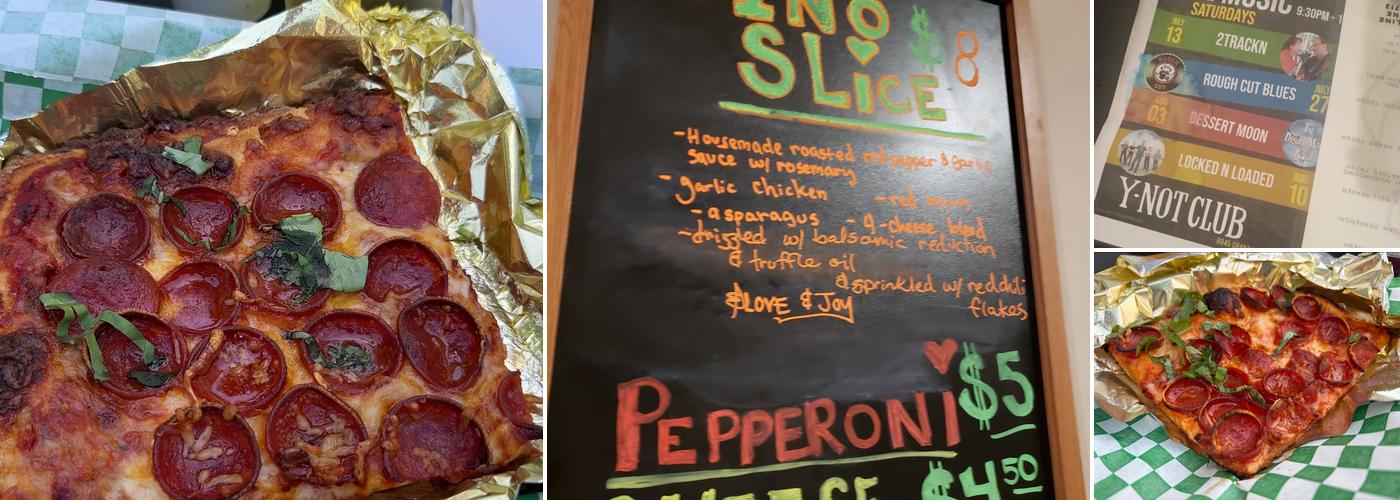 INO $8
SLICE
-Housemade roasted red pepper & garlic
sauce w/ rosemary
-garlic chicken
-red onion
-asparagus -4-cheese blend
-drizzled w/ balsamic reduction
& truffle oil
& sprinkled w/ red chili
flakes
&LOVE & JOY
PEPPERONI $5
$4.50
MUSIC 9:30PM - 1
SATURDAYS
JULY
13
2TRACKN
ROUGH CUT BLUES
JULY
27
AUG
03
DESSERT MOON
LOCKED N LOADED
AUG
10
Y-NOT CLUB